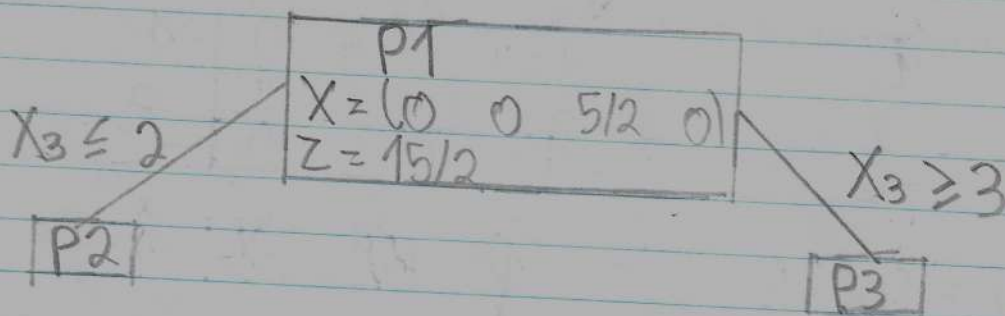 P1
X = (0 0 5/2 0)
Z = 15/2
X3 ≤ 2
X3 ≥ 3
P2
P3